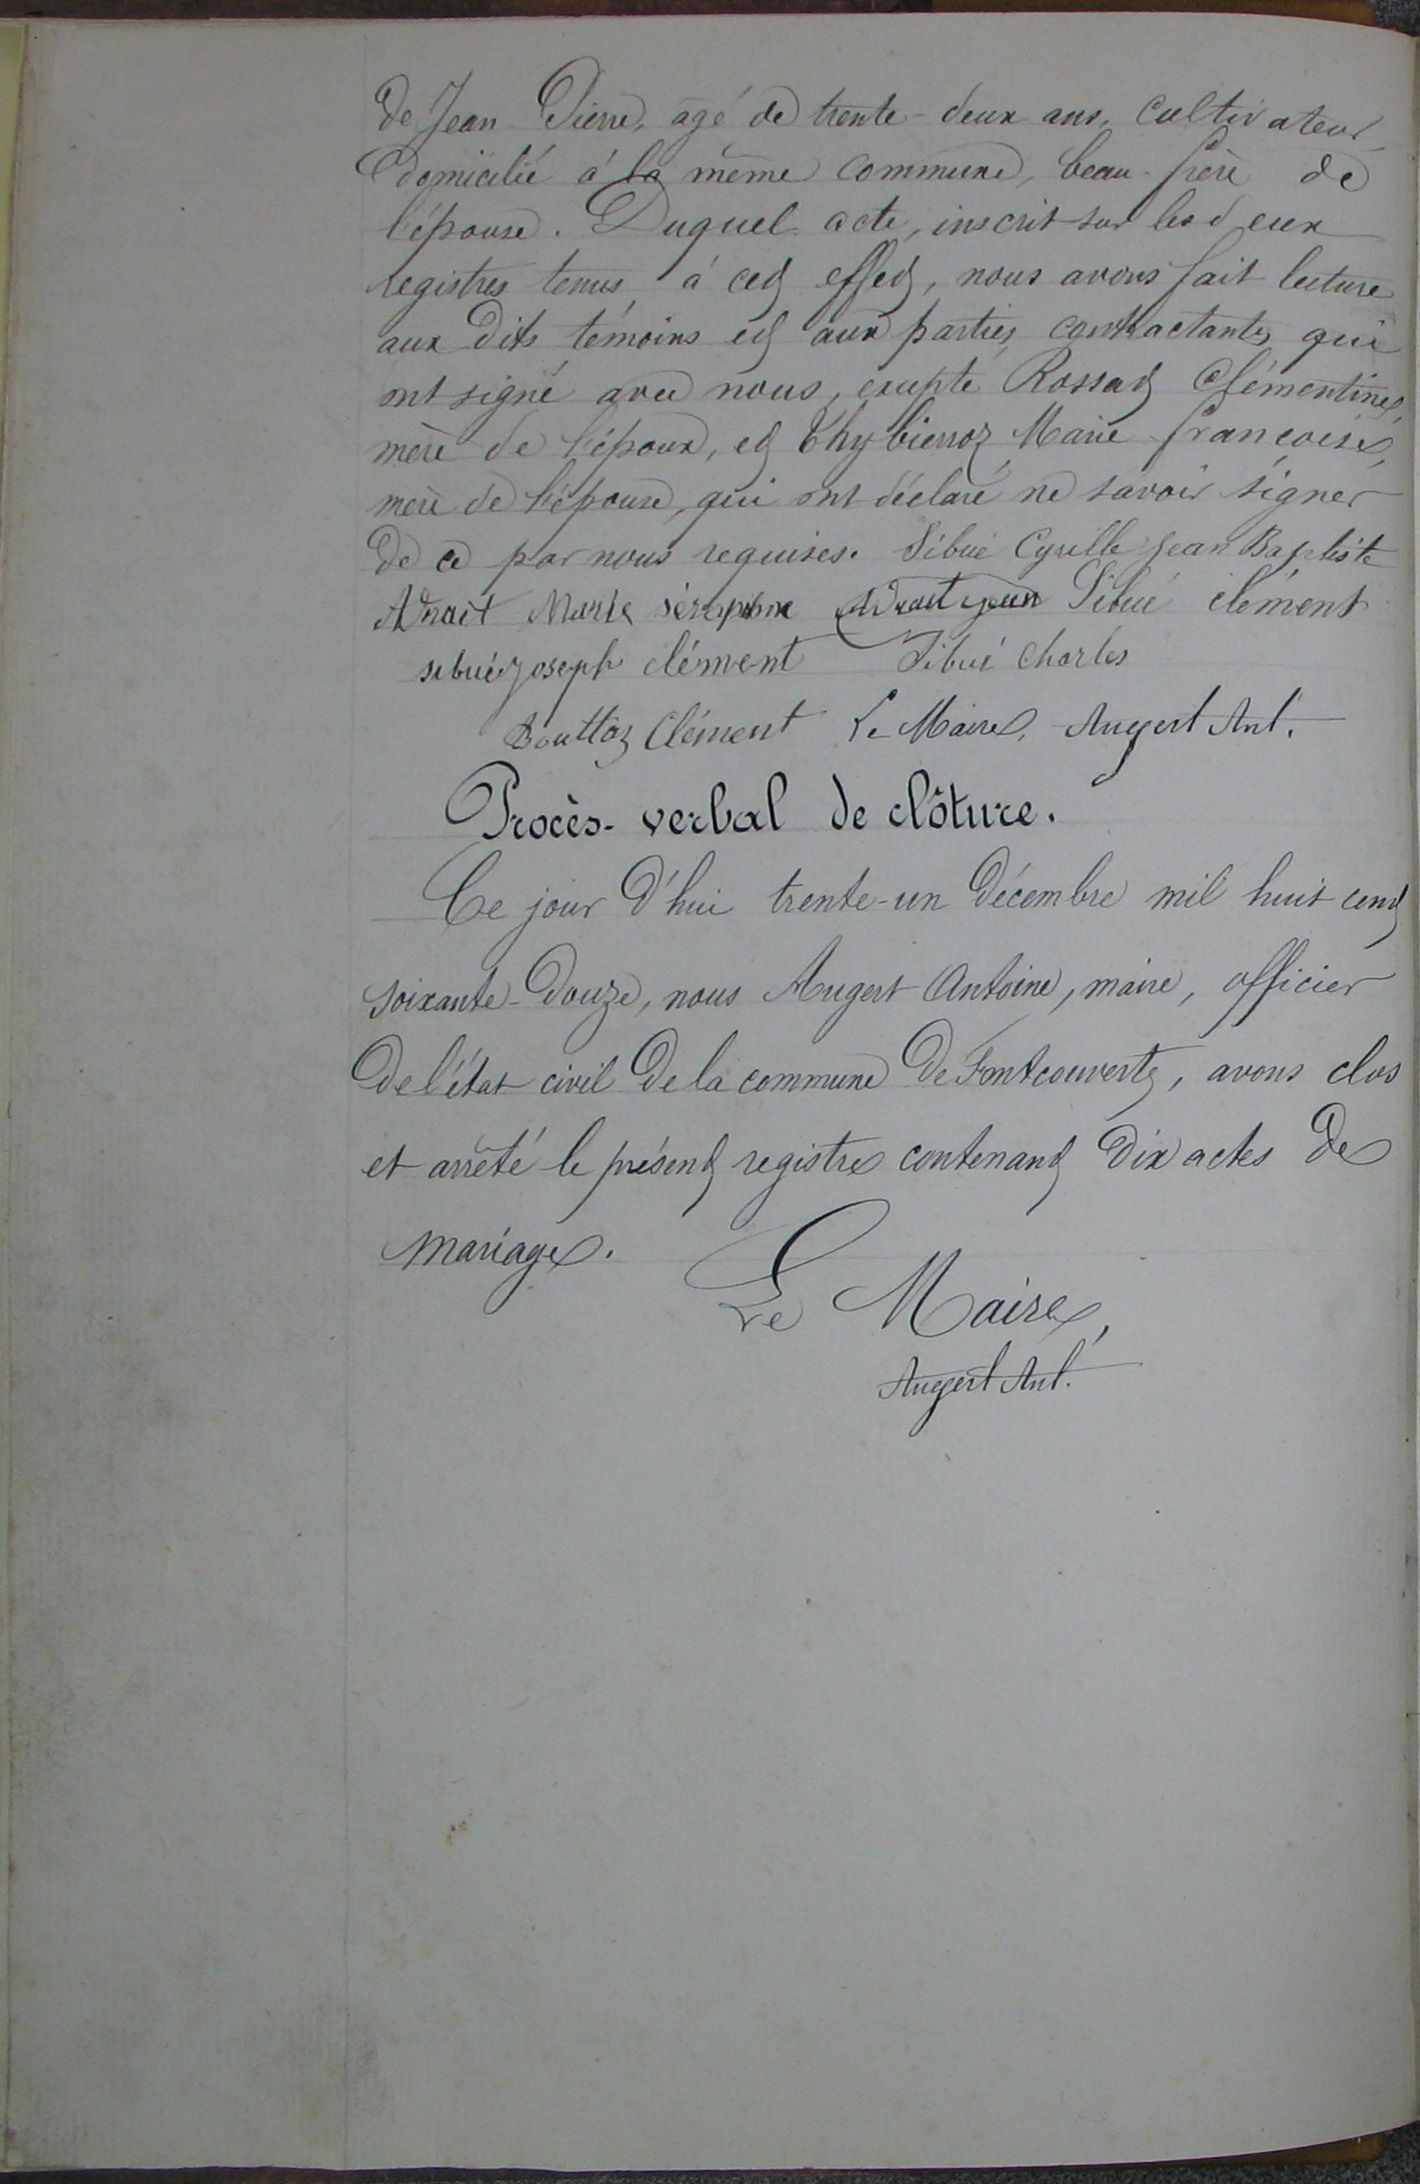 de Jean Pierre, agé de trente-deux ans, cultivateur
domicilié à la même commune, beau-frère de
l'épouse. Duquel acte, inscrit sur les deux
registres tenus à cet effet, nous avons fait lecture
aux dits témoins et aux parties contractantes qui
ont signé avec nous, excepté Rossat Clémentine,
mère de l'époux, et Thybierroz Marie françoise,
mère de l'épouse, qui ont déclaré ne savoir signer
de ce par nous requises. Sibué Cyrille Jean Baptiste
Adrait Marie séraphine Adrait jean Sibué clément
sibué joseph clément Sibué Charles
Bouttaz Clément Le Maire, Augert Ant.
Procès-verbal de clôture.
Ce jour d'hui trente-un décembre mil huit cent
soixante-douze, nous Augert Antoine, maire, officier
de l'état civil de la commune de Fontcouverte, avons clos
et arrêté le présent registre contenant dix actes de
mariage.
Le Maire,
Augert Ant.